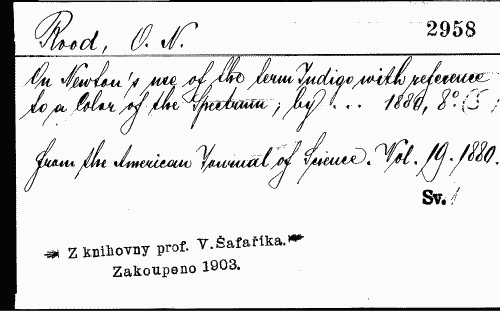 Rood, O. N.
2958
On Newton's use of the term Indigo with reference
to a Color of the Spectrum; by ... 1880, 8°
from the American Journal of Science. Vol. 19. 1880.
Sv.
Z knihovny prof. V. Šafaříka.
Zakoupeno 1903.